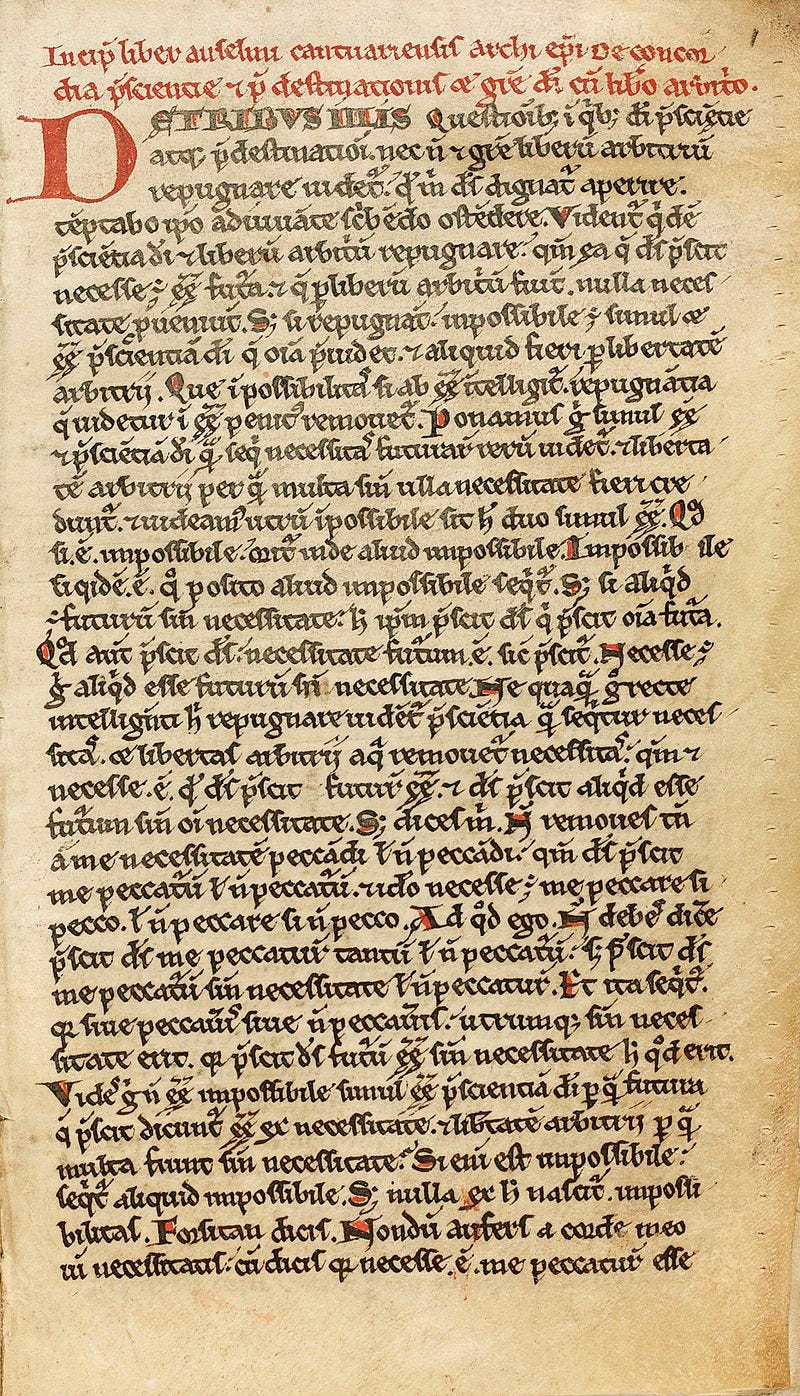 1
Incip̄ liber anselmi cantuariensis archi ep̄i De concor
dia p̄scientie ⁊ p̄destinationis ⁊ gr̄e dī cū lib̄o arbit̄o.
DE TRIBVS ILLIS Questioīb; ī q̄b; dī p̄sciētie
atq; p̄destinatiōi. nec n̄ ⁊ gr̄e liberū arbitriū
repugnare uidet̄. qđ m̄ ds̄ dignat̄ aperire.
tēptabo ip̄o adiuuāte sc̄bēdo ostēdere. Vident̄ q̄dē
p̄sciētia dī ⁊ liberū arbit̄ū repugnare. qm̄ ea q̄ ds̄ p̄scit
necesse ē ēē fut̄a. ⁊ q̄ p liberū arbit̄ū fiūt. nulla neces
sitate p̄ueniūt. S; si repugnāt. impossibile ē simul
ēē p̄scientiā dī q̄ oīa p̄uidet. ⁊ aliquid fieri p libertatē
arbitrij. Que īpossibilitas̄ si ab ēē ītelligit̄. repugnātia
q̄ uidetur ī ēē penit; remouet̄. Ponamus ḡ simul ēē
⁊ p̄sciētiā dī q̄ seq̄ necessitas̄ futurar̄ rerū uidet̄. ⁊ liberta
tē arbitrij per q̄ multa sin̄ ulla necessitate fieri cre
dunt̄. ⁊ uideam; utrū īpossibile sit h̄ duo simul ēē. Qđ
si. ē. impossibile. orit̄ inde aliud impossibile. Impossib ile
siqidē. ē. qđ posito aliud impossibile seq̄t̄. S; si aliq̄d
ē futurū sin̄ necessitate. h̄ ip̄m p̄scit ds̄ q̄ p̄scit oīa fut̄a.
Qđ aut̄ p̄scit ds̄. necessitate fut̄um. ē. sic p̄scit̄. Necesse ē
ḡ aliq̄d esse futurū sin̄ necessitate. Ne quaq̄ ḡ recte
intelligīti h̄ repugnare uidēt̄ p̄sciētia q̄ seq̄tur neces
sitas̄. ⁊ libertas arbitrij a q̄ remouet̄ necessitas̄. qm̄ ⁊
necesse. ē. qđ ds̄ p̄scit futur̄ ēē. ⁊ ds̄ p̄scit aliq̄d esse
fut̄um sin̄ oī necessitate. S; dices m̄. N̄ remoues tn̄
a me necessitatē peccādi ł n̄ peccādi. qm̄ ds̄ p̄scit
me peccat̄ū ł n̄ peccat̄ū. ⁊ idō necesse ē me peccare si
pecco. ł n̄ peccare si n̄ pecco. Ad qđ ego. N̄ debes̄ dic̄e
p̄scit ds̄ me peccatur̄ tantū ł n̄ peccat̄ū. s; p̄scit ds̄
me peccat̄ū sin̄ necessitate ł n̄ peccatur̄. Et ita seq̄t̄.
q; siue peccau̇is̄ siue n̄ peccau̇is̄. utrumq; sin̄ neces
sitate erit. q; p̄scit ds̄ fut̄ū ēē sin̄ necessitate h̄ qđ erit.
Vides̄ ḡ n̄ ēē impossibile simul ēē p̄scientiā dī p q̄ futura
q̄ p̄scit dicunt̄ ēē ex necessitate. ⁊ lib̄tatē arbitrij p q̄
multa fiunt sin̄ necessitate. Si eni est impossibile.
seq̄t̄ aliquid impossibile. S; nulla ex h̄ nascit̄. impossi
bilitas. Forsitan dicis. Nondū aufers a corde meo
uī necessitatis. cū dicis q; necesse. ē. me peccatur̄ esse